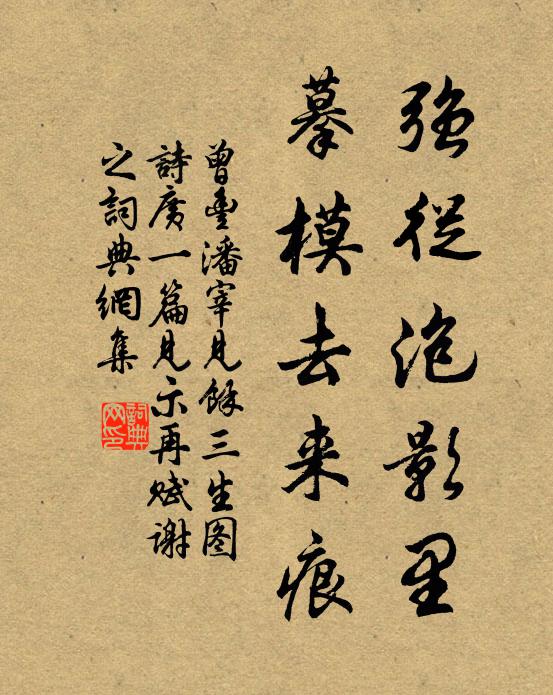 强從泡影里
摹模去来痕
曾豊潘宰見餘三生图
詩廣一篇見示再赋謝
之詞典網集
詞典
网印